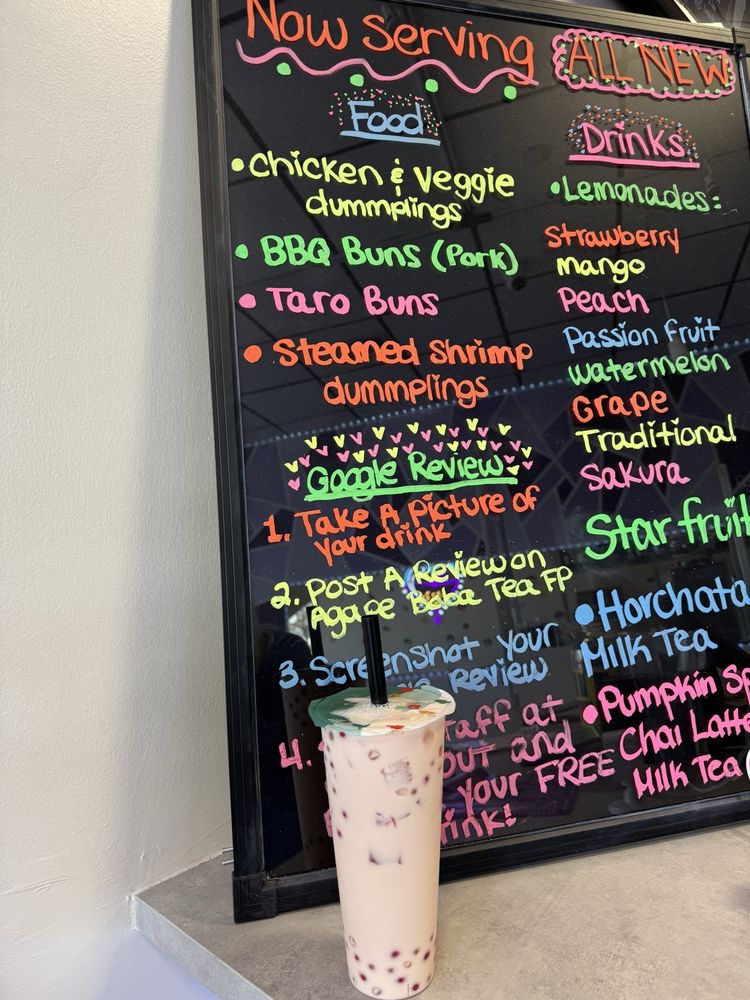 Now Serving
Food
• Chicken & Veggie
dummplings
• BBQ Buns (Pork)
• Taro Buns
• Steamed Shrimp
dummplings
Google Review
1. Take A Picture of
your drink
2. Post A Review on
Agape Boba Tea FP
3. Screenshot your
Review
4.
at
and
your FREE
ALL NEW
Drinks
• Lemonades:
Strawberry
mango
Peach
Passion fruit
watermelon
Grape
Traditional
Sakura
Star fruit
• Horchata
Milk Tea
• Pumpkin Sp
Chai Latte
Milk Tea